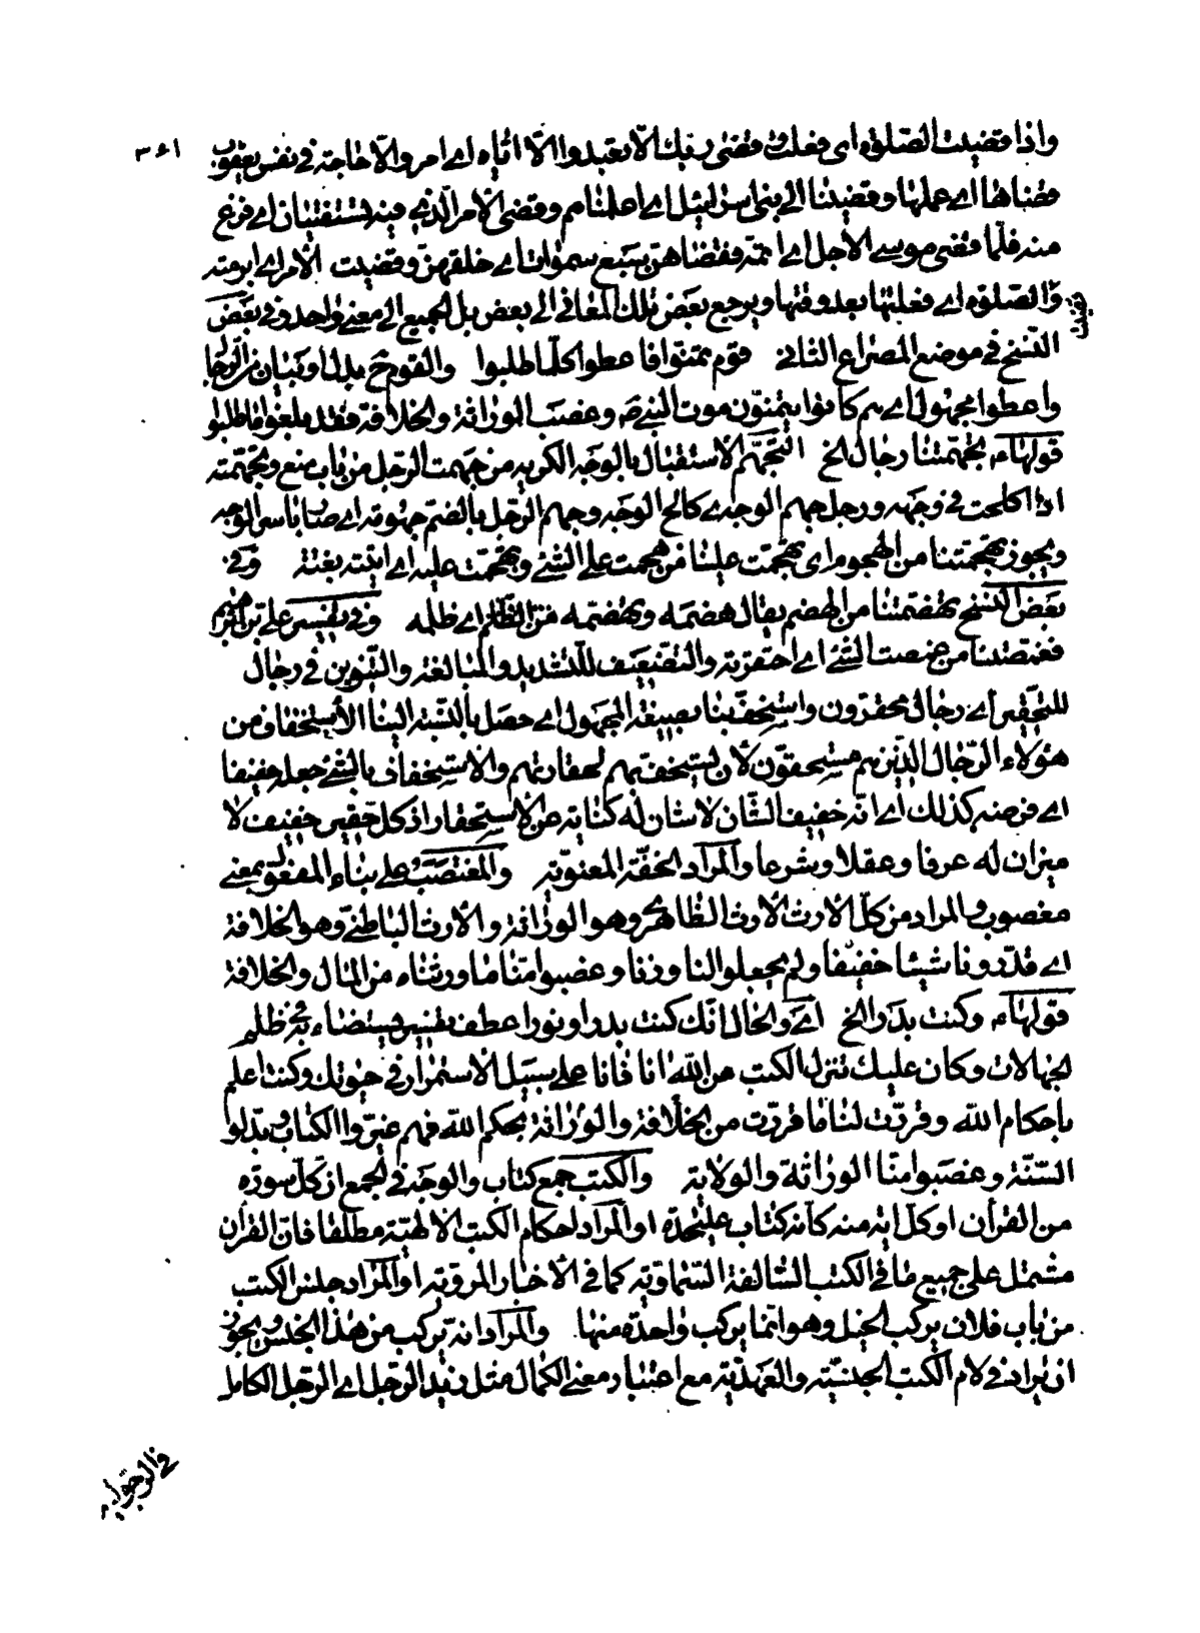 ٣٤١
واذا قضيت الصلوة اى فعلت وقضى ربك الا تعبدوا الا اياه اى امر والا حاجة فى نفس يعقوب
قضاها اى عملها وقضينا الى بنى اسرائيل اى اعلمناهم وقضى الأمر الذى فيه تستفتيان اى فرغ
منه فلما قضى موسى الأجل اى اتمه فقضاهن سبع سموات اى خلقهن وقضيت الأمر اى ابرمته
والصلوة اى فعلتها بعد وقتها ويرجع بعض تلك المعانى الى بعض بل الجميع الى معنى واحد وفى بعض
النسخ فى موضع المصراع الثانى قوم تمنوا فاعطوا كلما طلبوا والقوم ح بدل او بيان من الرجال
واعطوا مجهول اى هم كانوا يتمنون موت النبى ص وغصب الوراثة والخلافة فقد بلغوا ما طلبوا
قولها ء تجهمتنا رجال الخ التجهم الاستقبال بالوجه الكريه من جهمت الرجل من باب منع وتجهمته
اذا كلحت فى وجهه ورجل جهم الوجه اى كالح الوجه وجهم الرجل بالضم جهومة اى صار باسر الوجه
ويجوز تهجمتنا من الهجوم اى تهجمت علينا من هجمت على الشئ وتهجمت عليه اى اتيته بغتة وفى
بعض النسخ تهضمتنا من الهضم يقال هضمه وتهضمه من الظلم اى ظلمه وفى تفسير على بن ابراهيم
فغمصتنا من غمصت الشئ اى احتقرته والتضعيف للتشديد والمبالغة والتنوين فى رجال
للتحقير اى رجال محقرون واستخف بنا بصيغة المجهول اى حصل بالنسبة الينا الأستخفاف من
هؤلاء الرجال الذين هم مستحقون لأن يستخف بهم لحقارتهم والاستخفاف بالشئ جعله خفيفا
اى فرضه كذلك اى انه خفيف الشان لا شان له كناية عن الأستحقار اذ كل حقير خفيف لا
ميزان له عرفا وعقلا وشرعا والمراد الخفة المعنوية والمغتصب على بناء المفعول بمعنى
مغصوب والمراد من كل الارث الأرث الظاهرى وهو الوراثة والأرث الباطنى وهو الخلافة
اى قدرونا شيئا خفيفا ولم يجعلوا لنا وزنا وغصبوا منا ما ورثناه من المال والخلافة
قولها ء وكنت بدرا الخ اى والحال انك كنت بدرا ونورا عطف تفسير يستضاء به فى ظلم
الجهالات وكان عليك تنزل الكتب من الله انا فانا على سبيل الأستمرار فى حيوتك وكنت اعلم
باحكام الله وقررت لنا ما قررت من الخلافة والوراثة بحكم الله فهم غيروا الكتاب وبدلوا
السنة وغصبوا منا الوراثة والولاية والكتب جمع كتاب والوجه فى الجمع ان كل سورة
من القرأن او كل اية منه كأنه كتاب عليحدة او المراد احكام الكتب الالهية مطلقا فان القرأن
مشتمل على جميع ما فى الكتب السالفة السماوية كما فى الأخبار المروية او المراد جنس الكتب
من باب فلان يركب الخيل وهو انما يركب واحدة منها والمراد انه يركب من هذا الجنس ويجوز
ان يراد فى لام الكتب الجنسية والعهدية مع اعتبار معنى الكمال مثل زيد الرجل اى الرجل الكامل
فى الرجولية